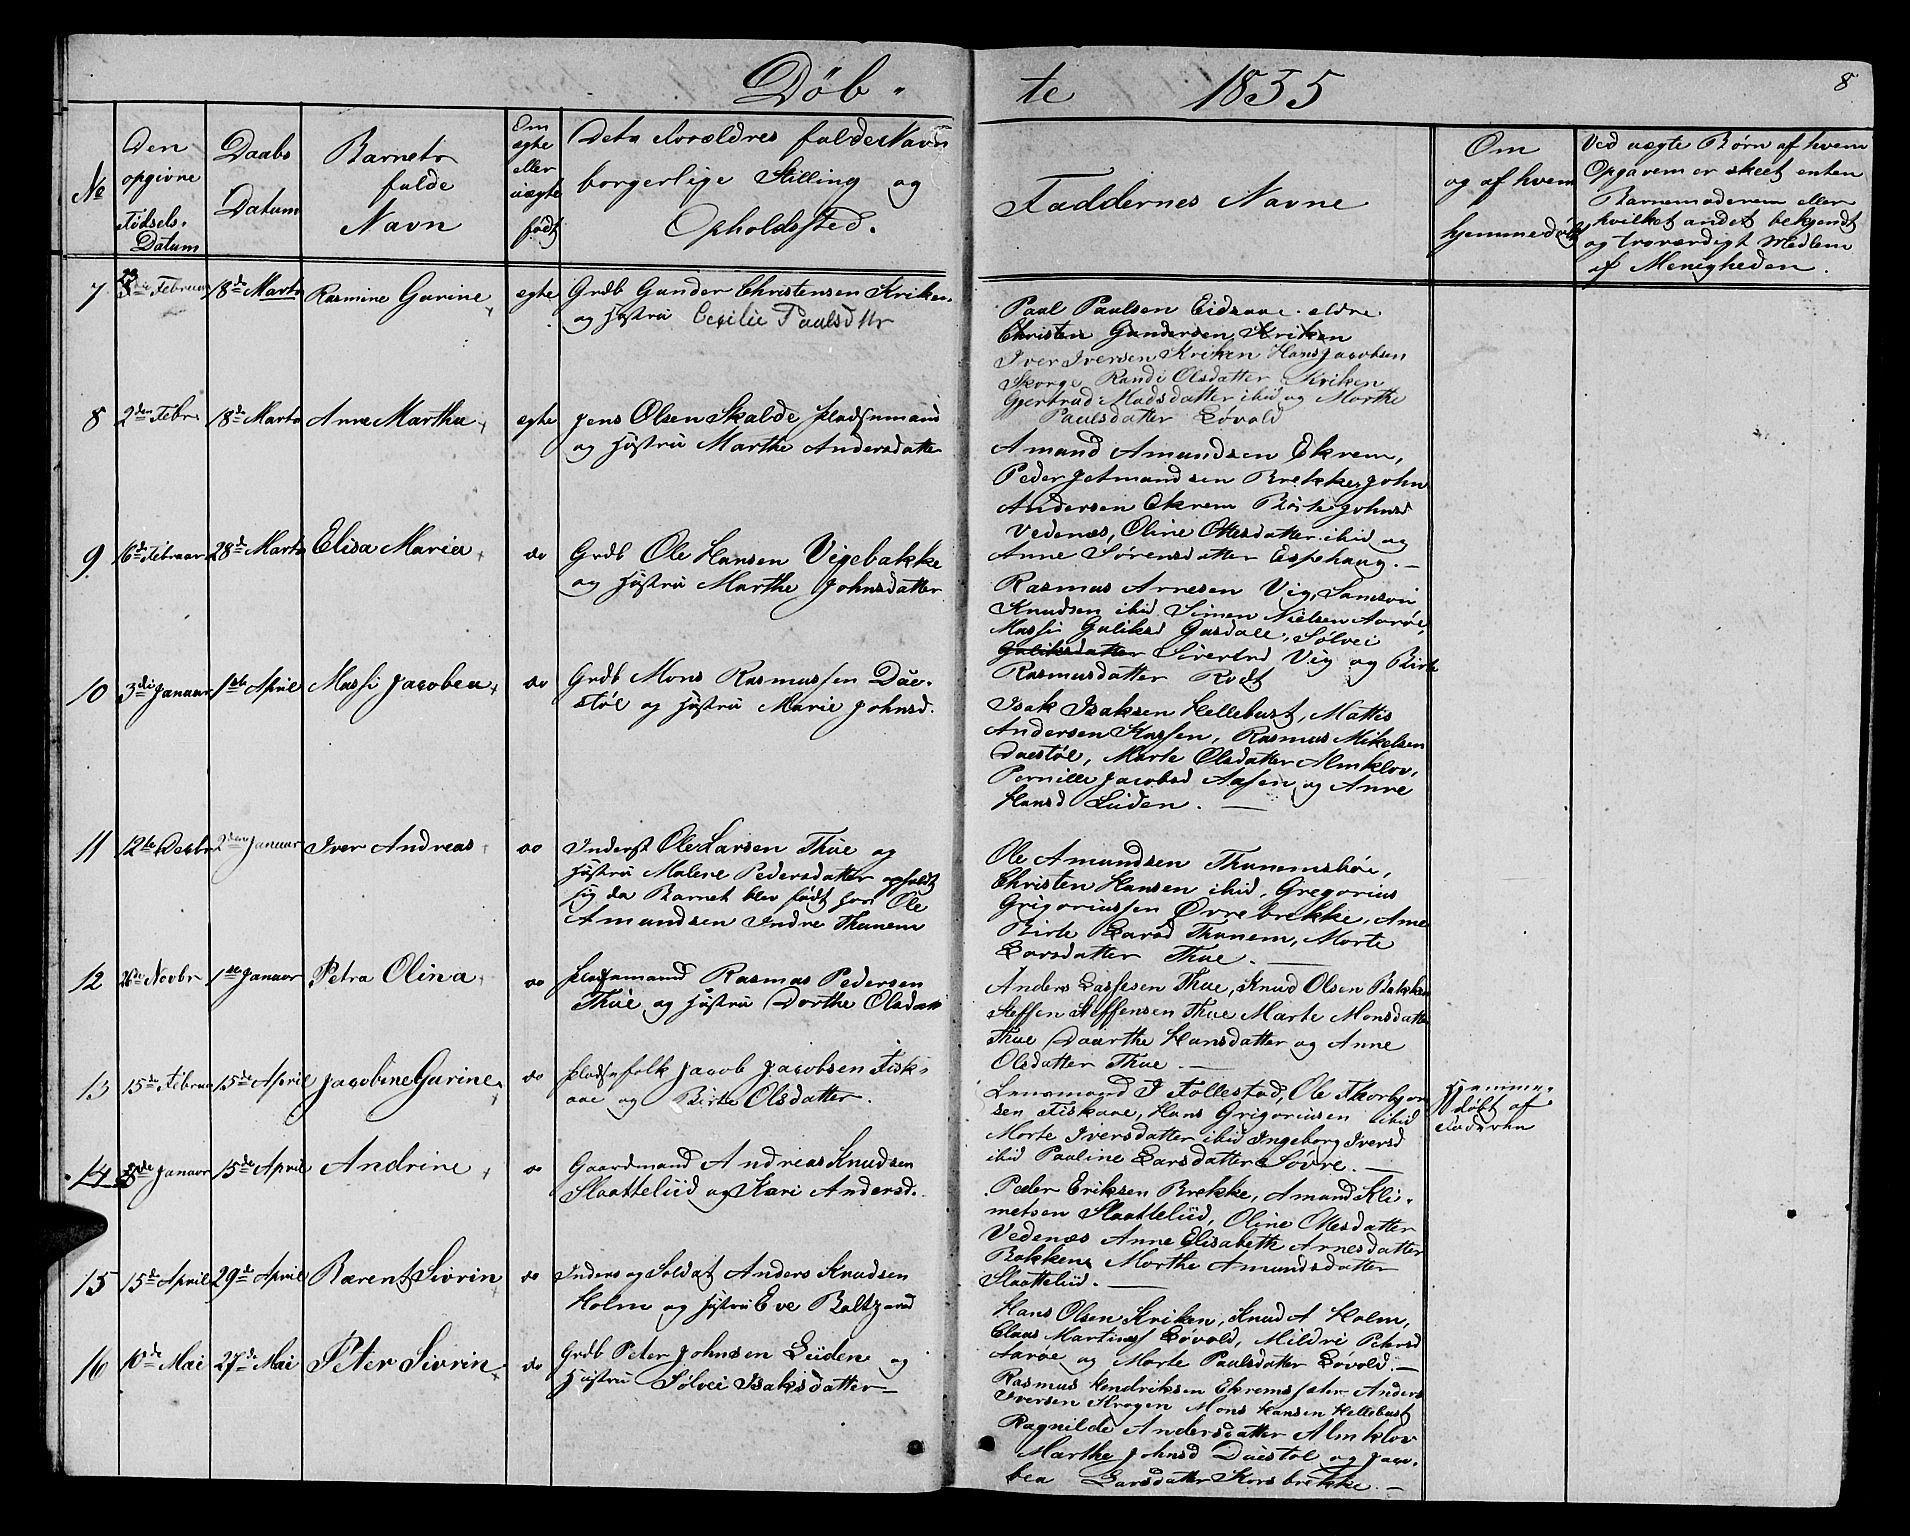 Døb-
te 1855
8
No
Den
opgivne
Fødsels-
Datum
Daabs
Datum
Barnets
fulde
Navn
Om
ægte
eller
uægte
født
Dets Forældres fulde Navn
borgerlige Stilling og
Opholdsted.
Faddernes Navne
Om
og af hvem
hjemmedøbt
Ved uægte Børn af hvem
Opgavem er skeet enten
Barnemoderem eller
hvilket andet bekjendt
og troværdigt Medlem
af Menigheden.
7 Februar 18de Marts Rasmine Gurine ægte Grdb Gunder Christensen Kriken
og Hustru Cecilie Paulsdttr
Paul Paulsen Eidsaae eldre
Christen Gundersen Kriken
Iver Iversen Kriken Hans Jacobsen
Skorge Randi Olsdatter Kriken
Gjertrud Madsdatter ibid og Marthe
Paulsdatter Løvold
8 2den Febr 18de Marts Anne Martha ægte Jens Olsen Skalde Pladsemand
og Hustru Marthe Andersdatter
Amand Amundsen Ekrem,
Peder Amandsen Brekke, John
Andersen Ekrem Birte Johnsd
Vedenæs, Oline Ottesdatter ibid og
Anne Sørensdatter Espehaug.—
9 6de Februar 28de Marts Elisa Maria do Grdb Ole Hansen Vigebakke
og Hustru Marthe Johnsdatter
Rasmus Arnesen Vig, Samson
Knudsen ibid Simen Nielsen Aarøe,
Massi Guliksd Gusdall, Sølvei
Guliksdatter Sivertsd Vig og Birte
Rasmusdatter Rødt
10 3die Januar 1ste April Massi Jacobea do Grdb Mons Rasmussen Due-
støl og Hustru Marie Johnsd.
Isak Isaksen Hellebust, Mattis
Andersen Aassen, Rasmus Mikelsen
Duestøl, Marte Olsdatter Almklov,
Pernille Jacobsd Aasen og Anne
Hansd Liiden.—
11 12te Decbr 2den Januar Iver Andreas do Inderst Ole Larsen Thue og
Hustru Malene Pedersdatter opholdt
sig da Barnet blev født hos Ole
Amundsen Indre Thunem
Ole Amundsen Thunemshøi,
Christen Hansen ibid, Gregorius
Grigoriussen Øvrebrekke, Anne
Birte Larsd Thunem, Marte
Larsdatter Thue.—
12 26de Novbr 1ste Januar Petra Olina do Pladsemand Rasmus Pedersen
Thue og Hustru Dorthe Olsdatt
Anders Lassesen Thue, Knud Olsen Bakken
Steffen Steffensen Thue Marte Monsdatter
Thue Daarthe Hansdatter og Anne
Olsdatter Thue.—
13 15de Februar 15de April Jacobine Gurine do Pladsefolk Jacob Jacobsen Fisk-
aae og Birte Olsdatter.
Lensmand J Follestad, Ole Thorbjør
sen Fiskaae, Hans Grigoriusen ibid
Marte Iversdatter ibid Ingeborg Iversd
ibid Pauline Larsdatter Søvre.—
Hjemme-
døbt af
Faderen
14 Januar 15de April Andrine do Gaardmand Andreas Knudsen
Slaatteliid og Kari Andersd.
Peder Eriksen Brekke, Amund Kli-
metsen Slaatteliid, Oline Ottesdatter
Vedenæs Anne Elisabeth Arnesdatter
Bakken, Marthe Amundsdatter
Slaatteliid.—
15 15de April 29de April Barent Sivrin do Inders og Soldat Anders Knudsen
Holm og Hustru Eve Baltzersd
Hans Olsen Kriken, Knud A Holm,
Claus Martinus Løvold, Mildri Petersd
Aarøe og Marte Paulsdatter Løvold.—
16 10de Mai 27de Mai Peter Sivrin do Grdb Peter Johnsen Liiden og
Hustru Sølvei Isaksdatter—
Rasmus Hendriksen Ekremssæter Anders
Iversen Krogen Mons Hansen Hellebust
Ragnilde Andersdatter Almklov
Marthe Johnsd Duestøl og Jaco-
bea Larsdatter Korsbrekke.—